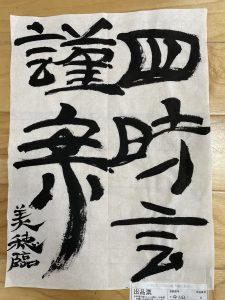 四時言
謹案
美穂臨
出品票